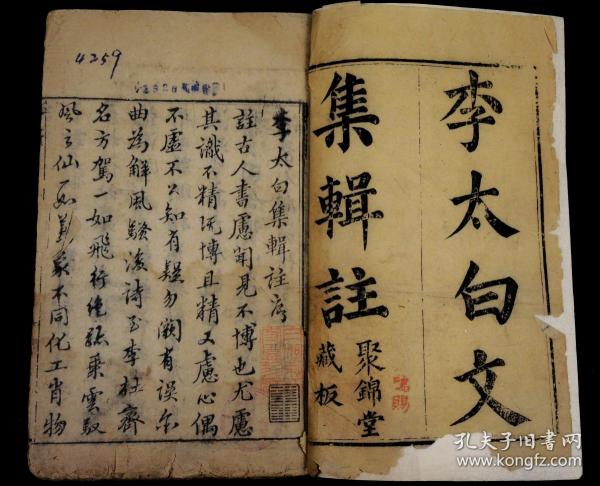 李太白文
集輯註
聚錦堂
藏板
李太白集輯註序
註古人書慮聞見不博也尤慮
其識不精既博且精又慮心偶
不虛不公知有疑勿闕有誤
曲為解風騷後詩至李杜齊
名方駕一如飛行絕跡乘雲馭
風之仙 不同化工肖物
4259
孔夫子旧书网
www.kongfz.com